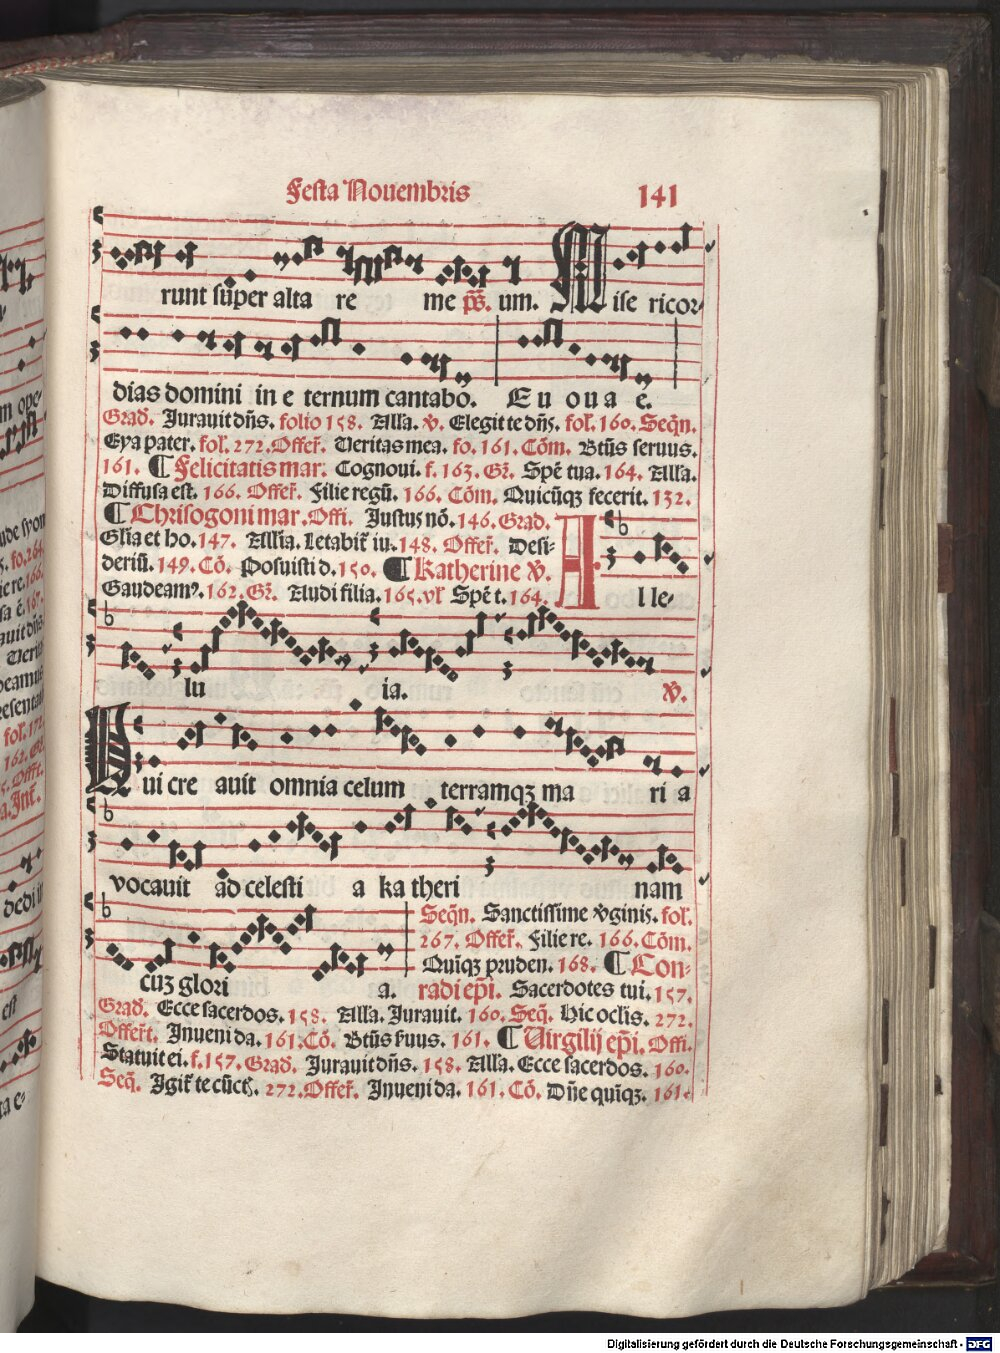 Festa Nouembris 141
runt super alta re me p̄s. um. Mise ricor-
dias domini in e ternum cantabo. Eu oua e.
Grad. Jurauit dn̄s. folio 158. Alla. v̄. Elegit te dn̄s. fol. 160. Seqn̄.
Eya pater. fol. 272. Offer̄. Veritas mea. fo. 161. Cōm. Btūs seruus.
161. ¶ Felicitatis mar. Cognoui. f. 163. Gr̄. Spē tua. 164. Alla.
Diffusa est. 166. Offer̄. Filie regū. 166. Cōm. Quicūqꝫ fecerit. 132.
¶ Chrisogoni mar. Offi. Justus nō. 146. Grad.
Glīa et ho. 147. Allīa. Letabit̄ iu. 148. Offer̄. Desi-
deriū. 149. Cō. Posuisti d. 150. ¶ Katherine v̄.
Gaudeamꝰ. 162. Gr̄. Audi filia. 165. vl̄ Spē t. 164. A l le-
lu ia. v̄.
Qui cre auit omnia celum terramqꝫ ma ri a
vocauit ad celesti a ka theri nam
cuꝫ glori a.
Seqn̄. Sanctissime v̄ginis. fol.
267. Offer̄. Filie re. 166. Cōm.
Quīqꝫ pruden. 168. ¶ Con-
radi ep̄i. Sacerdotes tui. 157.
Grad. Ecce sacerdos. 158. Alla. Jurauit. 160. Seq̄. Hic oclis. 272.
Offer̄t. Inueni da. 161. Cō. Btūs ẜuus. 161. ¶ Uirgilij ep̄i. Offi.
Statuit ei. f. 157. Grad. Jurauit dn̄s. 158. Alla. Ecce sacerdos. 160.
Seq̄. Igit̄ te cūct. 272. Offer̄. Inueni da. 161. Cō. Dn̄e quīqꝫ. 161.
Digitalisierung gefördert durch die Deutsche Forschungsgemeinschaft - DFG